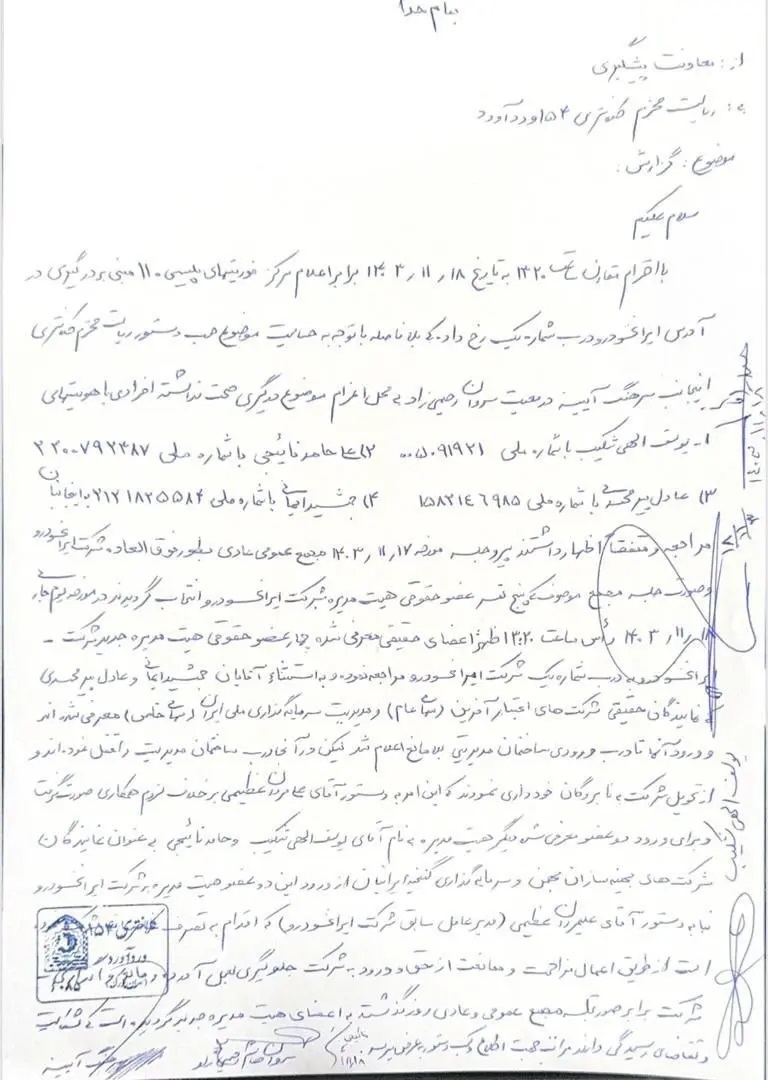 بنام خدا
از: معاونت پیشگیری
به: ریاست محترم کلانتری ۱۵۴ وردآورد
موضوع: گزارش:
سلام علیکم
با احترام مقارن ساعت ۱۳۲۰ به تاریخ ۱۸ ر ۱۱ ر ۱۴۰۳ برابر اعلام مرکز فوریتهای پلیسی ۱۱۰ مبنی بر درگیری در
آدرس ایرانخودرو درب شماره یک رخ داد که بلافاصله با توجه به حساسیت موضوع حسب دستور ریاست محترم کلانتری
اینجانب سرهنگ آیینه در معیت سروان رحیمی راد به محل اعزام موضوع درگیری صحت نداشته افرادی با هویتهای
۱- یوسف الهی شکیب با شماره ملی ۰۰۵۰۹۱۹۲۱ ۲) حامد نائیجی با شماره ملی ۲۲۰۰۷۹۲۴۸۷
۳) عادل پیرمحمدی با شماره ملی ۱۵۸۲۱۴۶۹۸۵ ۴) جمشید ایمانی با شماره ملی ۲۱۲۱۸۲۵۵۸۴ به اینجانبان
مراجعه و متفقاً اظهار داشتند پیرو جلسه مورخه ۱۷ ر ۱۱ ر ۱۴۰۳ مجمع عمومی عادی بطور فوق العاده شرکت ایرانخودرو
و صورت جلسه مجمع موصوف که پنج نفر عضو حقوقی هیت مدیره شرکت ایرانخودرو انتخاب گردیدند در مورخه یوم جاری
۱۸ ر ۱۱ ر ۱۴۰۳ رأس ساعت ۱۳:۲۰ ظهر اعضای حقیقی معرفی شده چهار عضو حقوقی هیت مدیره جدید شرکت -
ایرانخودرو به درب شماره یک شرکت ایرانخودرو مراجعه نموده و به استثناء آقایان جمشید ایمانی و عادل پیرمحمدی
که نمایندگان حقیقی شرکت های اعتبار آفرین (سهامی عام) و مدیریت سرمایه گذاری ملی ایران (سهامی خاص) معرفی شده اند
و ورود آنها تا درب ورودی ساختمان مدیریتی بلامانع اعلام شد لیکن در آنجا درب ساختمان مدیریت را قفل نموده اند و
از تحویل شرکت به نامبردگان خودداری نمودند که این امر به دستور آقای علیمردان عظیمی بر خلاف لزوم همکاری صورت گرفت
و برای ورود دو عضو معرفی شده دیگر هیت مدیره به نام آقای یوسف الهی شکیب و حامد نائیجی به عنوان نمایندگان
شرکت های بهینه سازان بهمن و سرمایه گذاری گنجینه ایرانیان از ورود این دو عضو هیت مدیره به شرکت ایرانخودرو
بنا به دستور آقای علیمردان عظیمی (مدیرعامل سابق شرکت ایرانخودرو) که اقدام به تصرف
است از طریق اعمال مزاحمت و ممانعت از حق و ورود به شرکت جلوگیری بعمل آورده و مالکیت و
شرکت برابر صورتجلسه مجمع عمومی و عادی روز گذشته به اعضای هیت مدیره جدید گردیده است که شکایت
و تقاضای رسیدگی دارند مراتب جهت اطلاع و کسب دستور بعرض میرسد
سرهنگ آیینه
کلانتری ۱۵۴
وردآورد
یوسف الهی شکیب